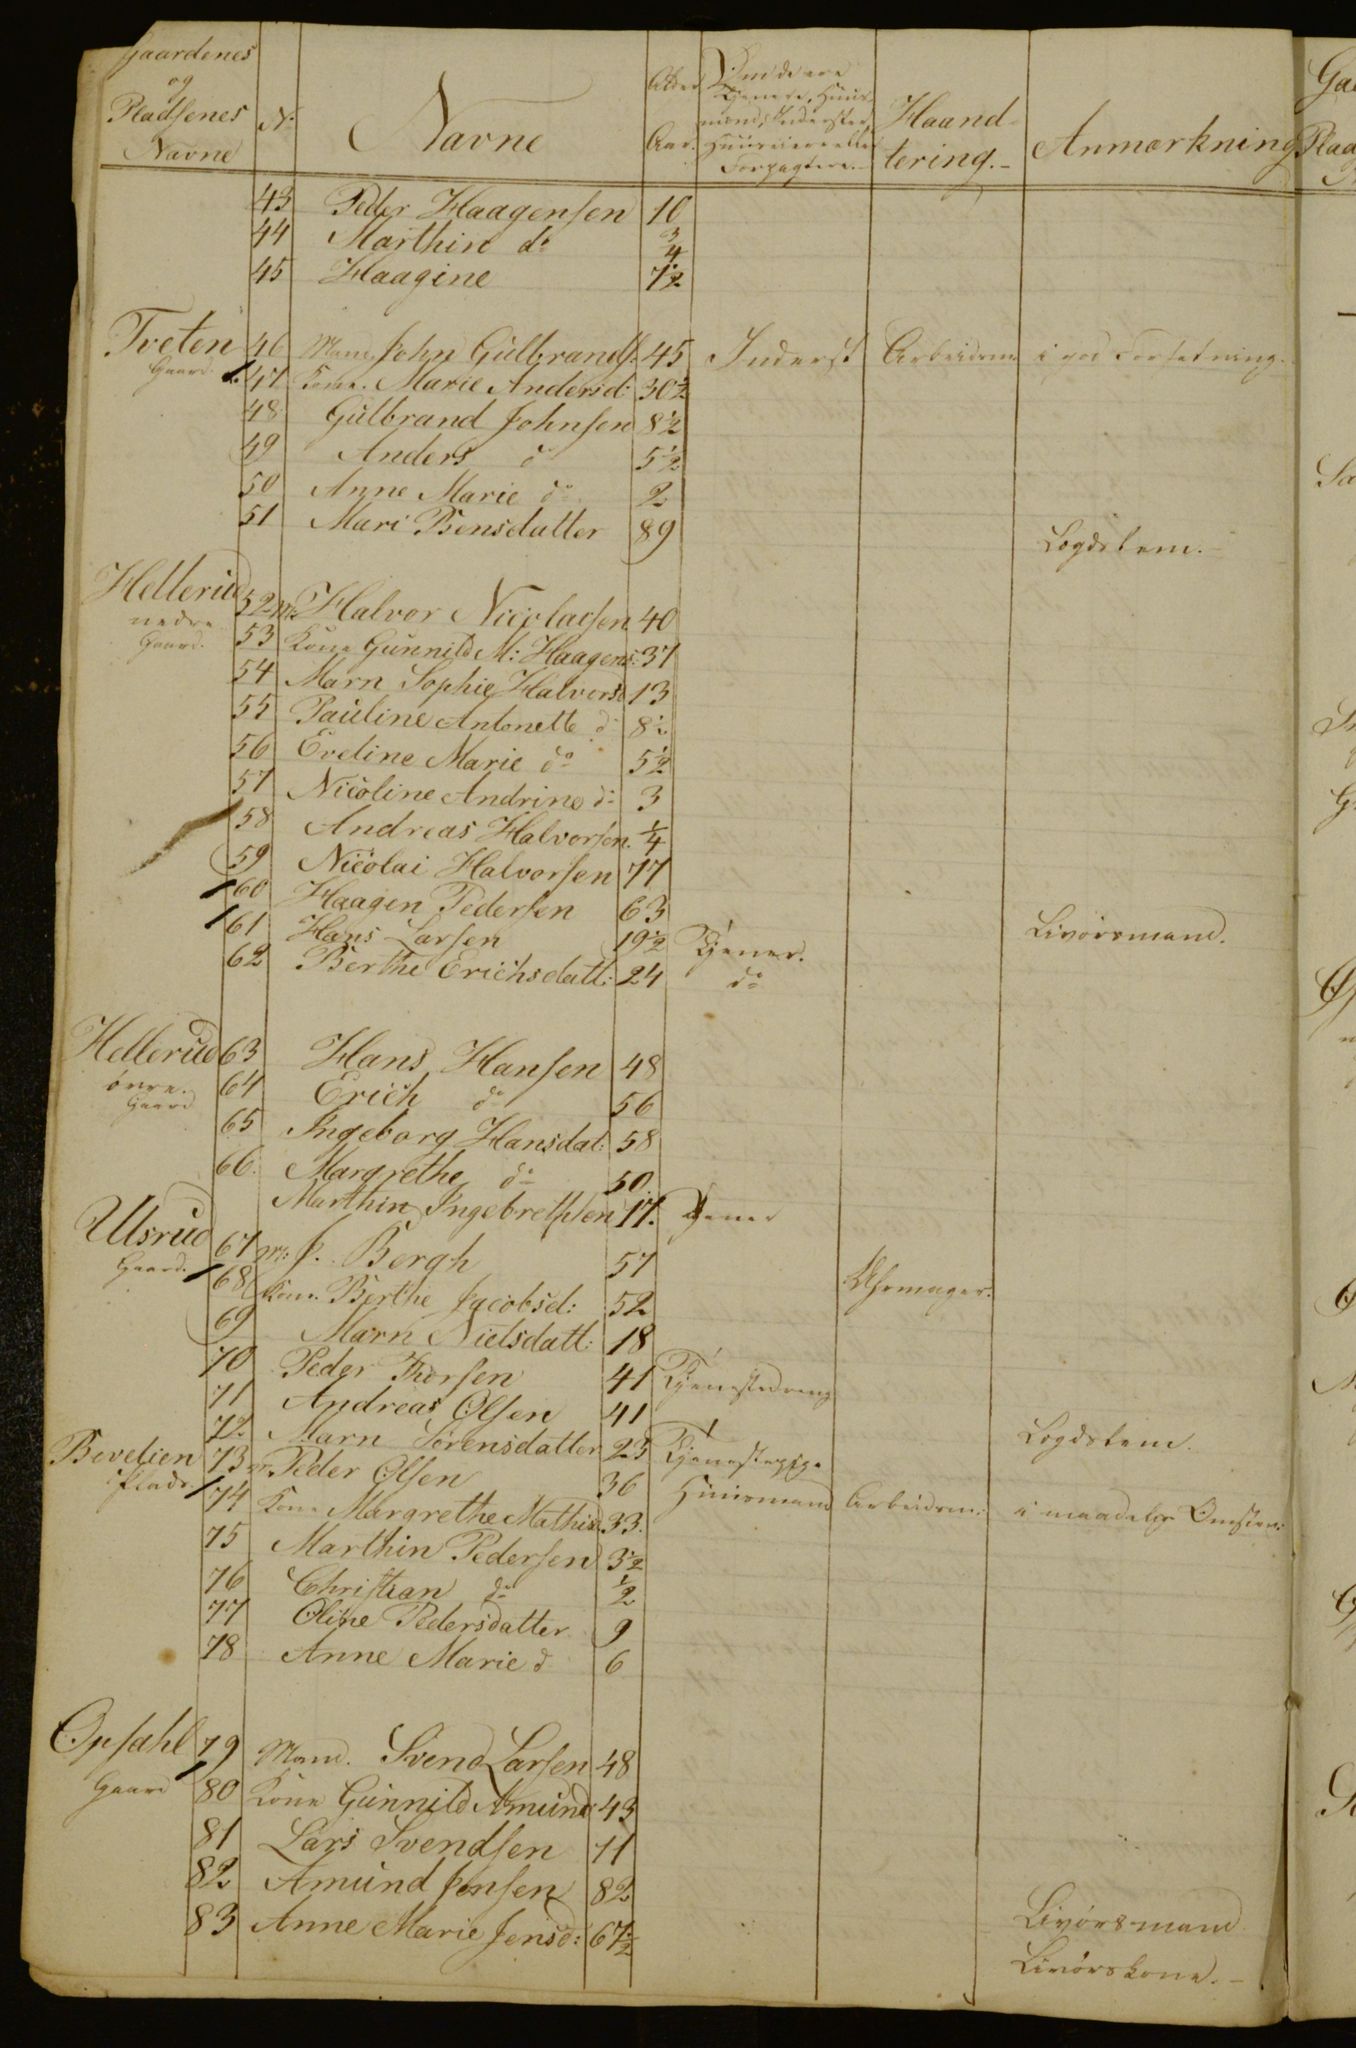 Gaardenes og Pladsenes Navne | No | Navne | Alder Aar. | Om de ere Tjenere, Huus-mænd, Inderster, Huuseiere eller Forpagtere. | Haand-tering. | Anmærkning
43 Peder Haagensen 10
44 Marthin do 3/4
45 Haagine 7 1/2
Tveten 46 Mand John Gulbrands: 45 Inderst Arbeidsm i god Forfatning.
Gaard. 1. 47 Kone. Marie Andersd: 30 1/2
48 Gulbrand Johnsen 8 1/2
49 Anders do 5 1/2
50 Anne Marie do 2
51 Mari Bensdatter 89 Lægdslem.
Hellerud 52 M: Halvor Nicolaisen 40
nedre
Gaard. 53 Kone Gunnild M: Haagens: 37
54 Marn Sophie Halvorsd 13
55 Pauline Antonette d 8 1/2
56 Eveline Marie do 5 1/2
57 Nicoline Andrine do 3
58 Andreas Halvorsen. 1/4
59 Nicolai Halvorsen 77
1 60 Haagen Pedersen 63 Livørsmand.
1 61 Hans Larsen 19 1/2 Tjener.
62 Berthe Erichsdatt: 24 do
Hellerud 63 Hans Hansen 48
øvre.
Gaard 64 Erich do 56
65 Ingeborg Hansdat: 58
66. Margrethe do 50
Marthin Ingebretsen 17. Tjener
Ulsrud 67 M: J. Bergh 57 Uhrmager.
Gaard. 1 68 Kone. Berthe Jacobsd: 52
69 Marn Nielsdatt: 18
70 Peder Thorsen 41 Tjenestedreng
71 Andreas Olsen 41 Lægdslem.
72 Marn Sørensdatter 23 Tjenestepige
Bevelien 73 m Peder Olsen 36 Huusmand Arbeidsm: i maadelig Omstæn:
Plads. 1 74 Kone Margrethe Mathisd 33.
75 Marthin Pedersen 3 1/2
76 Christian do 1/2
77 Oline Pedersdatter 9
78 Anne Marie d 6
Opsahl 79 Mand. Svend Larsen 48
Gaard 1 80 Kone Gunnild Amunds: 43
81 Lars Svendsen 11
82 Amund Jensen 82 Livørsmand
83 Anne Marie Jensd: 67 1/2 Livørskone.